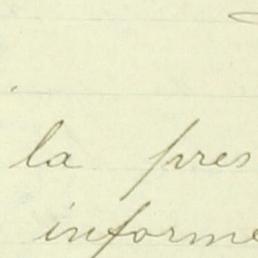 la pres
informe